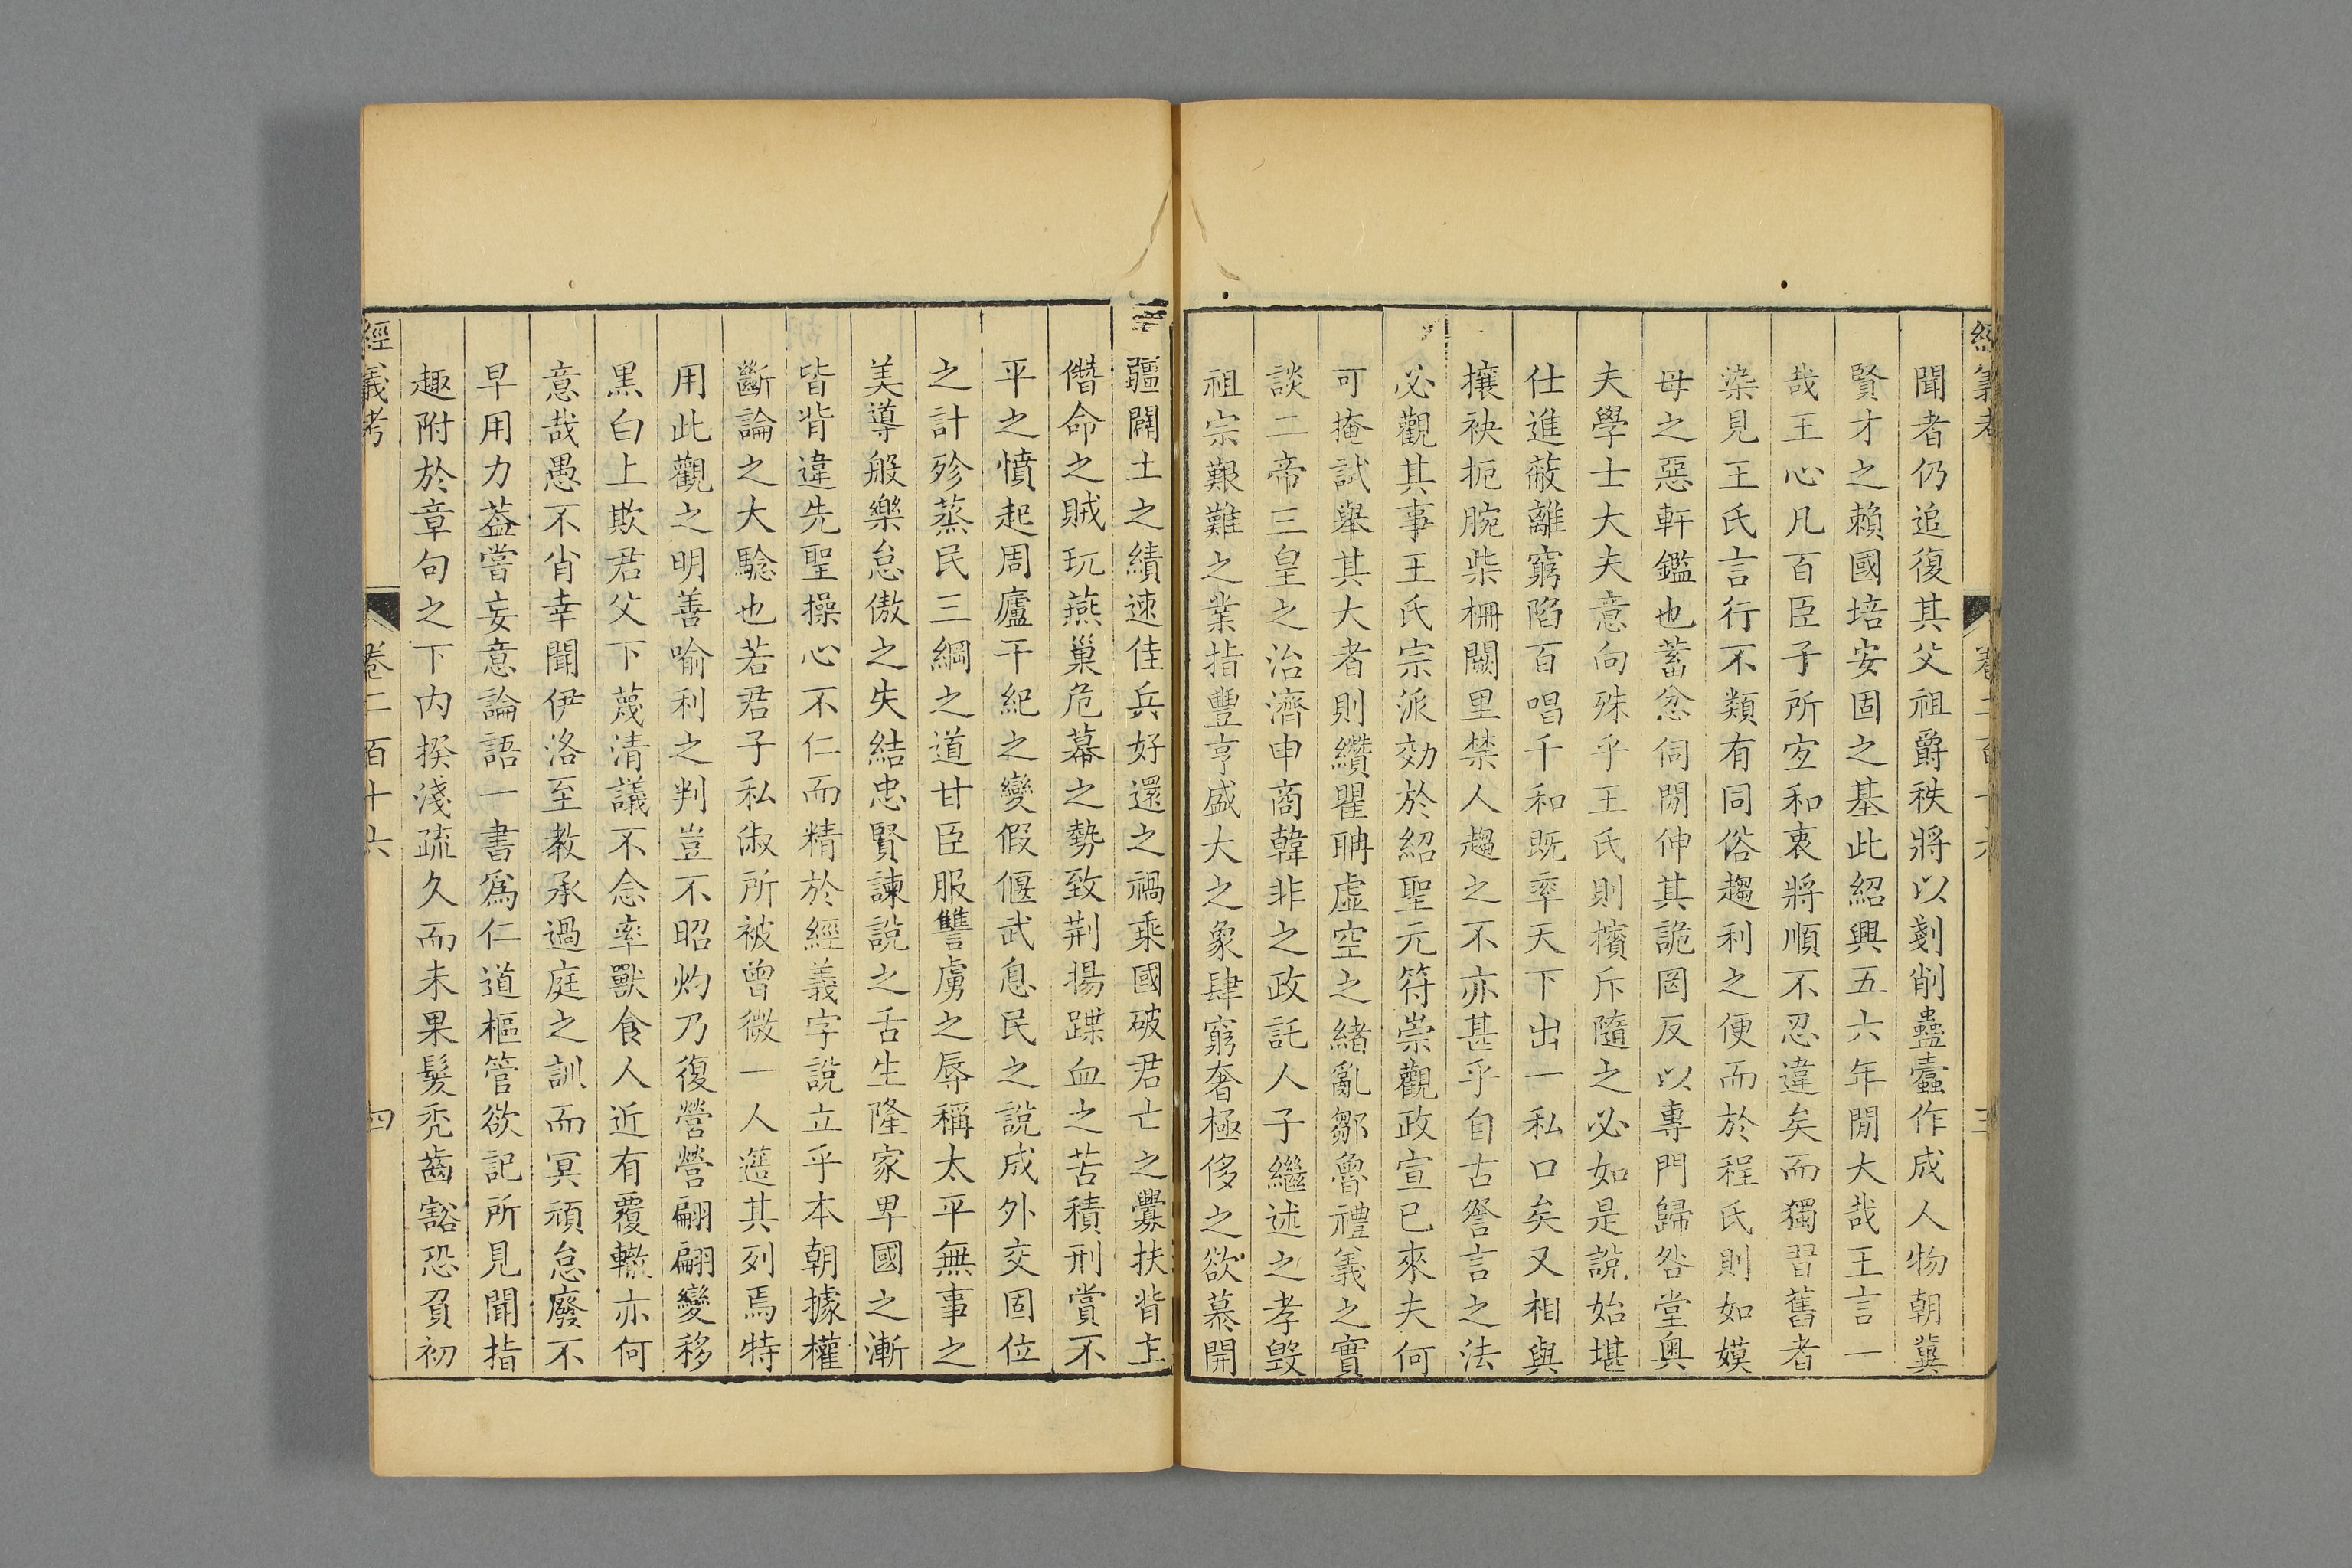 經義考 卷二百十六 三
聞者仍追復其父祖爵秩將以剗削蠱蠹作成人物朝冀
賢才之賴國培安固之基此紹興五六年閒大哉王言一
哉王心凡百臣子所宜和衷將順不忍違矣而獨習舊者
染見王氏言行不類有同俗趨利之便而於程氏則如嫫
母之惡軒鑑也蓄忿伺閒伸其詭罔反以專門歸咎堂奧
夫學士大夫意向殊乎王氏則擯斥隨之必如是說始堪
仕進蔽離窮陷百唱千和既率天下出一私口矣又相與
攘袂扼腕柴柵闕里禁人趨之不亦甚乎自古詧言之法
必觀其事王氏宗派効於紹聖元符崇觀政宣已來夫何
可掩試舉其大者則纘瞿聃虛空之緒亂鄒魯禮義之實
談二帝三皇之治濟申商韓非之政託人子繼述之孝毁
祖宗艱難之業指豐亨盛大之象肆窮奢極侈之欲慕開
疆闢土之績速佳兵好還之禍乘國破君亡之釁扶背主
僭命之賊玩燕巢危幕之勢致荆揚蹀血之苦積刑賞不
平之憤起周廬干紀之變假偃武息民之說成外交固位
之計殄蒸民三綱之道甘臣服讐虜之辱稱太平無事之
美導般樂怠傲之失結忠賢諫說之舌生隆家卑國之漸
皆背違先聖操心不仁而精於經義字說立乎本朝據權
斷論之大驗也若君子私淑所被曾微一人簉其列焉特
用此觀之明善喻利之判豈不昭灼乃復營營翩翩變移
黑白上欺君父下蔑清議不念率獸食人近有覆轍亦何
意哉愚不肖幸聞伊洛至教承過庭之訓而冥頑怠廢不
早用力葢嘗妄意論語一書爲仁道樞管欲記所見聞指
趣附於章句之下内揆淺疏久而未果髮禿齒豁恐負初
經義考 卷二百十六 四